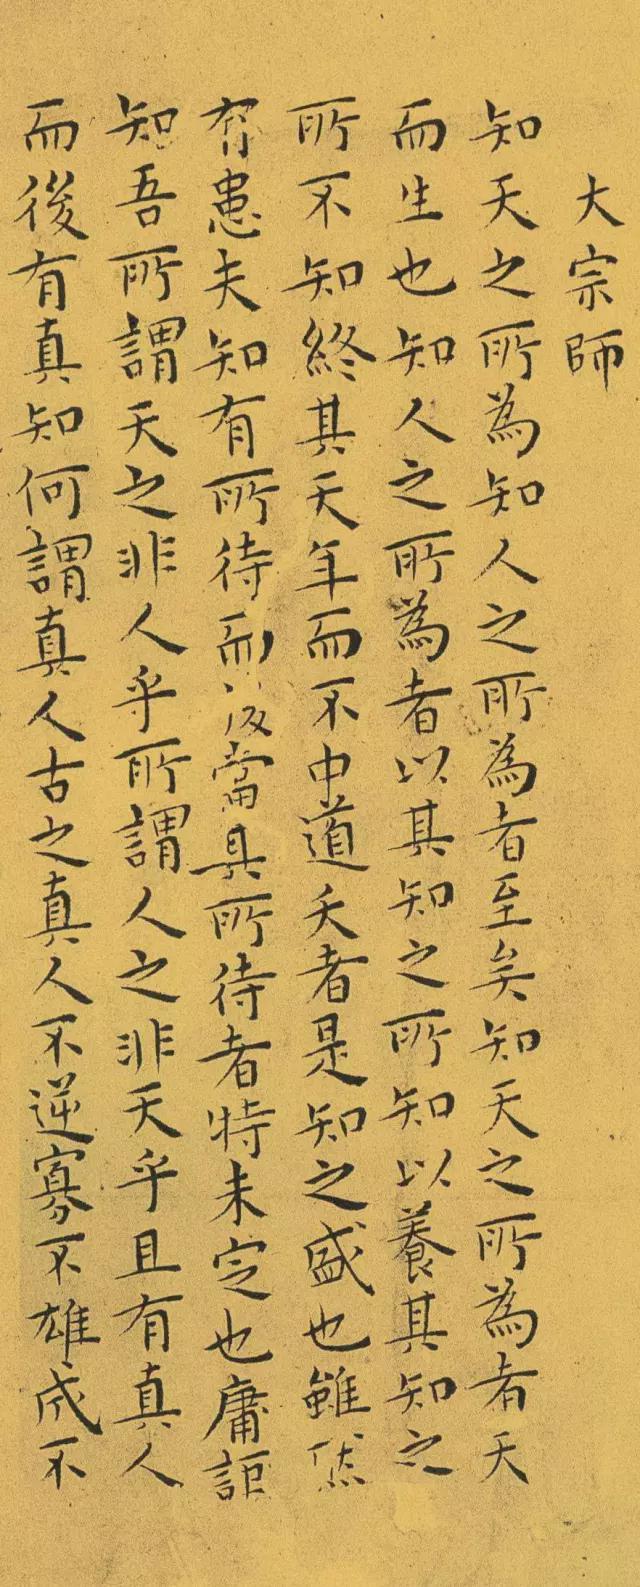 大宗師
知天之所為知人之所為者至矣知天之所為者天
而生也知人之所為者以其知之所知以養其知之
所不知終其天年而不中道夭者是知之盛也雖然
有患夫知有所待而後當其所待者特未定也庸詎
知吾所謂天之非人乎所謂人之非天乎且有真人
而後有真知何謂真人古之真人不逆寡不雄成不